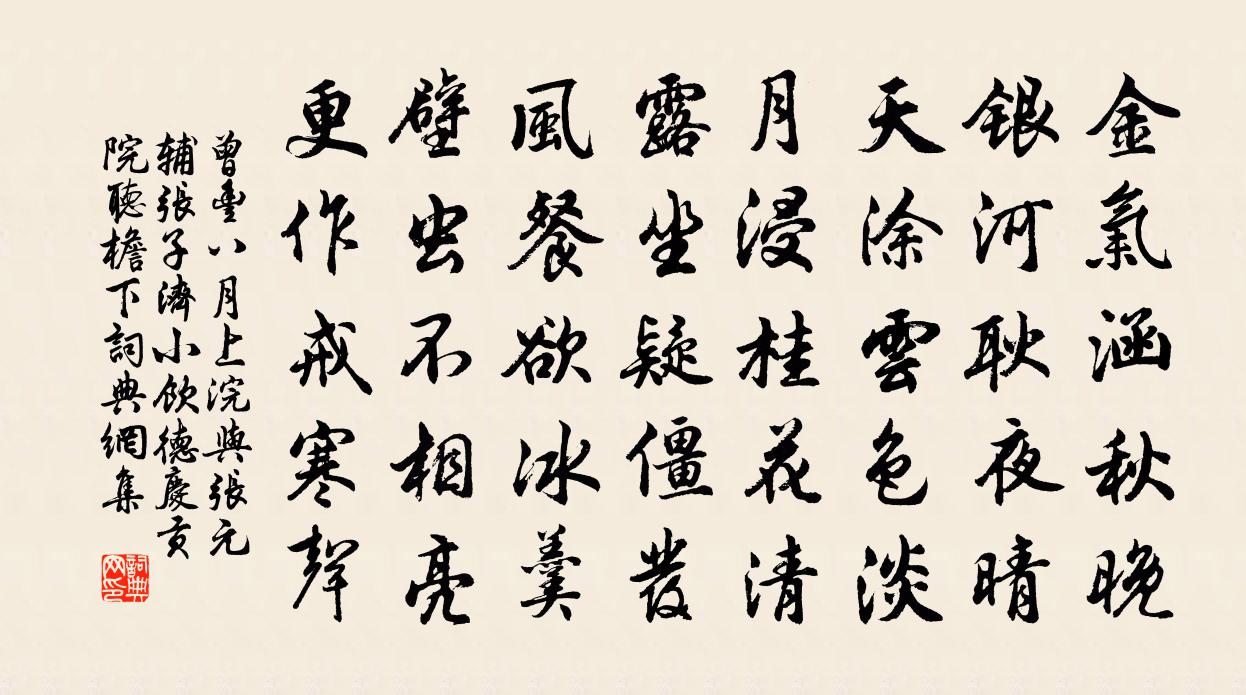 金氣涵秋晚
銀河耿夜晴
天涂雲色淡
月浸桂花清
露坐疑僵發
風餐欲冰羹
壁虫不相亮
更作戒寒聲
曾豐八月上浣與張元
輔張子濟小飲德慶貢
院聽檐下詞典網集
詞典網印